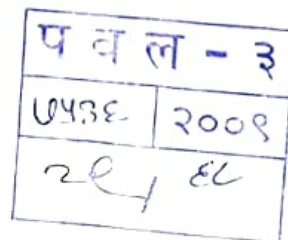 प व ल - ३
७५३६ २००९
२९/ ६८